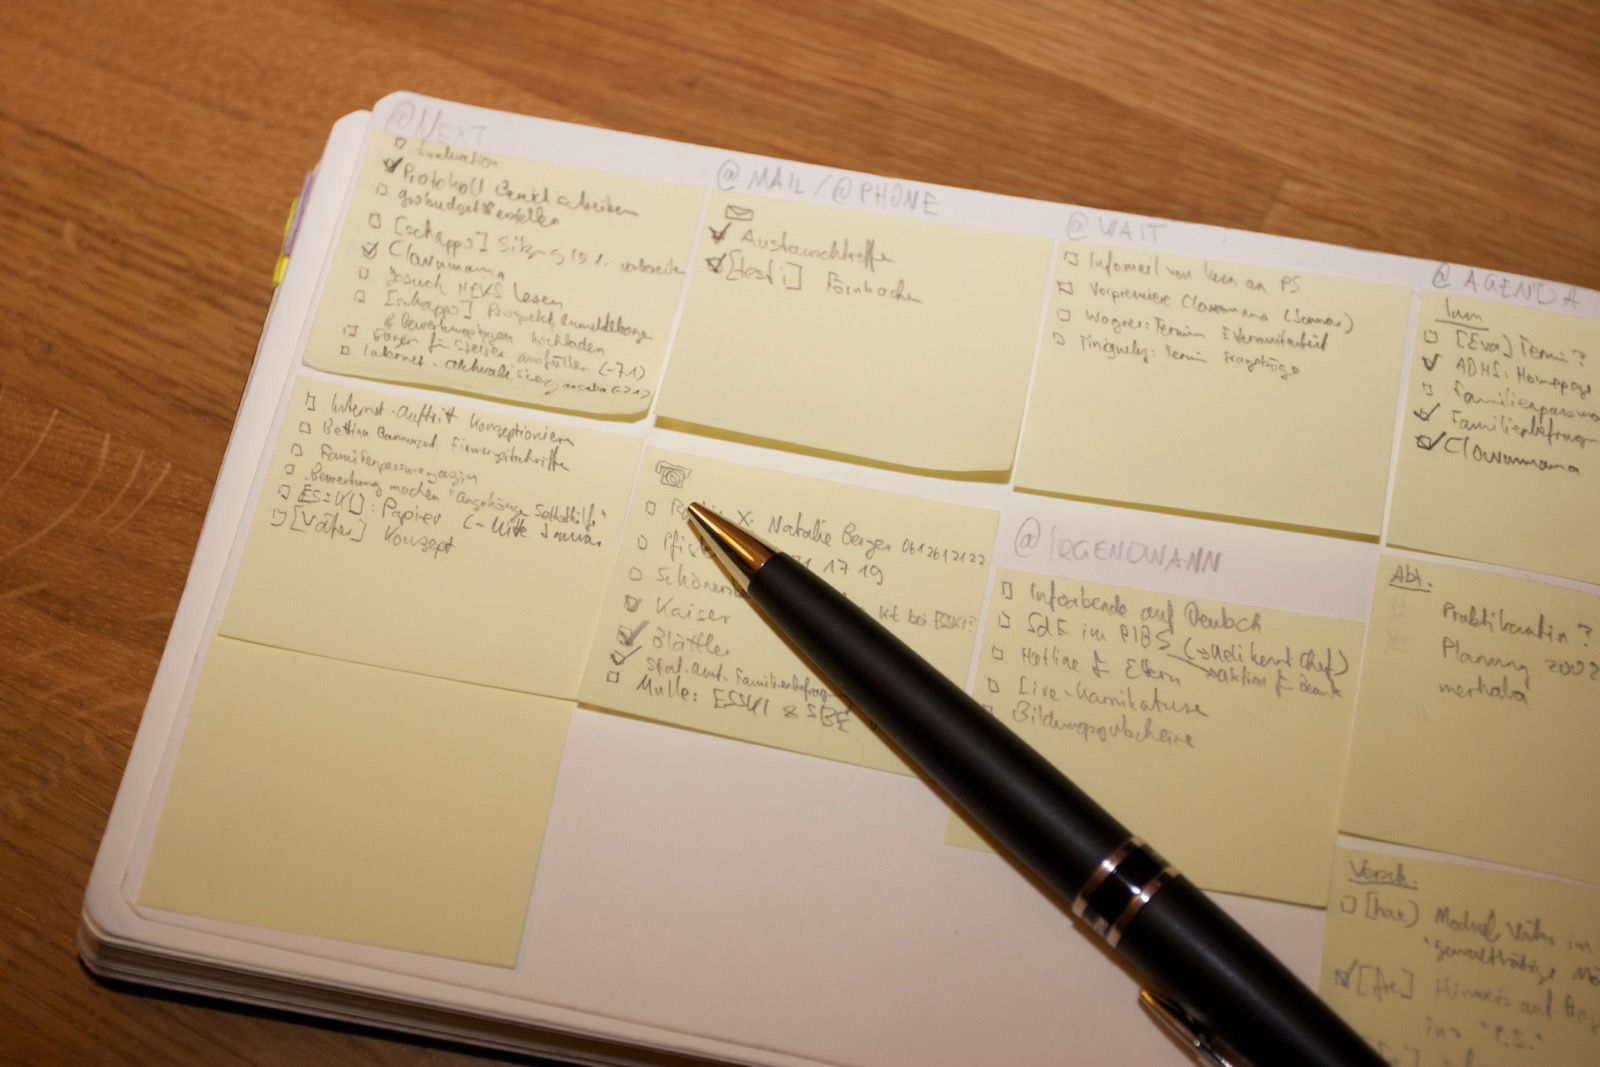 @NEXT
Evaluation
Protokoll schreiben
erstellen
[schapps] Sitzung 15.1. vorbereiten
Clownmama
Gesuch MEKS lesen
[schapps] Prospekt, Anmeldebogen
& Bewertungsbogen hochladen
für Steiner ausfüllen (-7.1)
Internet-aktualisierung
Internet-Auftritt Konzeptionieren
Bettina Firmenzeitschriften
Familienpassmagazin
Bewertung machen "Angehörige Selbsthilfe"
ESSKI: Papier (-Mitte Januar
[Väter] Konzept
@MAIL/@PHONE
Austauschtreffen
[testi] Förnbacher
X: Natalie Berger 0612612122
71 17 19
bei ESSKI?
Kaiser
Blättler
Stat. Amt. Familienbefrag
Mulle: ESSKI & SBE
@WAIT
Infomail von an PS
Vorpremiere Clownmama (Januar)
Wagner: Termin Elternmitarbeit
Tinguely: Termin Fragebögen
@IRGENDWANN
Infoabende auf Deutsch
SdE im PIBS (→ Ueli kennt Chef)
Hotline f. Eltern → Aktion f.
Live-Karrikaturen
Bildungsgutscheine
@AGENDA
[Eva] Termin?
ADHS: Homepage
Familienpassma
Familienbefragu
Clownmama
Abt.
Praktikantin?
Planung 200
merhaba
Versch.
[har] Modul Väter im
"gewalttätige Mä
[fre] Hinweis auf
ins "P.S."